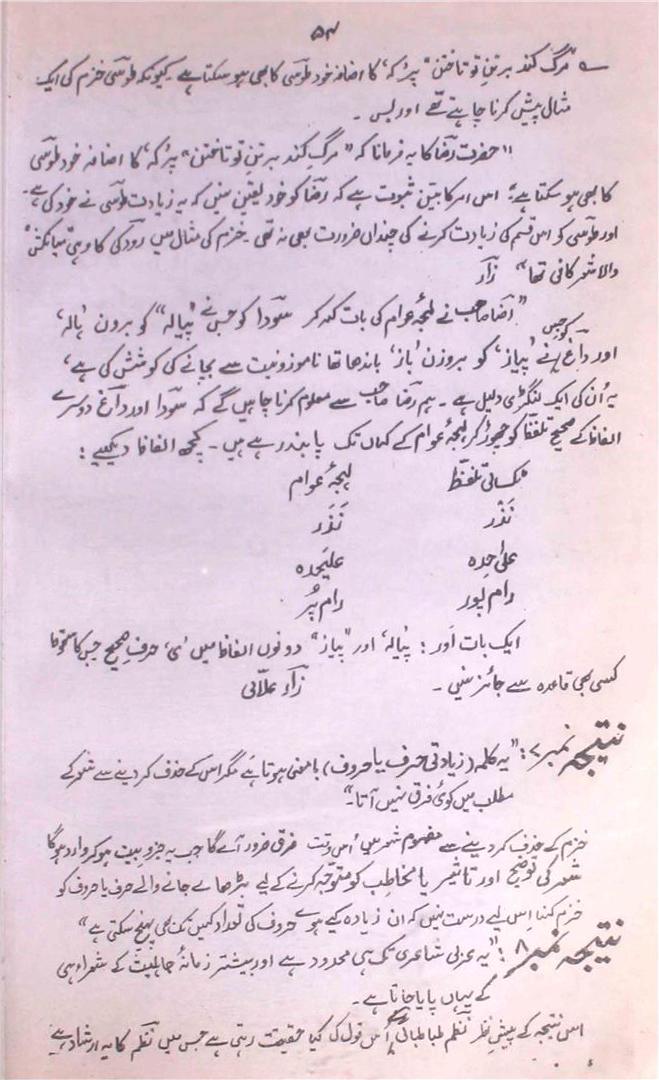 ۵۴
؎ مرگ کند بر تنِ تو تاختن" پر 'کہ' کا اضافہ خود طوسی کا بھی ہو سکتا ہے۔ کیونکہ طوسی خزم کی ایک
مثال پیش کرنا چاہتے تھے اور بس۔
"حضرت رضا کا یہ فرمانا کہ "مرگ کند بر تنِ تو تاختن" پر 'کہ' کا اضافہ خود طوسی
کا بھی ہو سکتا ہے" اس امر کا بیّن ثبوت ہے کہ رضا کو خود یقین نہیں کہ یہ زیادت طوسی نے خود کی ہے۔
اور طوسی کو اس قسم کی زیادت کرنے کی چنداں ضرورت بھی نہ تھی۔ خزم کی مثال میں رودکی کا وہی
والا شعر کافی تھا" زآر
"رضا صاحب نے لہجۂ عوام کی بات کہہ کر سودا کو جس نے 'پیالہ' کو بروزن 'پالہ'
اور داغ کو جس نے 'پیاز' کو بروزن 'باز' باندھا تھا ناموزونیت سے بچانے کی کوشش کی ہے،
یہ اُن کی ایک لنگڑی دلیل ہے۔ ہم رضا صاحب سے معلوم کرنا چاہیں گے کہ سودا اور داغ دوسرے
الفاظ کے صحیح تلفظ کو چھوڑ کر لہجۂ عوام کے کہاں تک پابند رہے ہیں۔ کچھ الفاظ دیکھیے:
ٹکسالی تلفظ لہجۂ عوام
نَذْر نَذَر
علٰی حدہ علیحدہ
رام پور رام پُر
ایک بات اَور: 'پیالہ' اور "پیاز" دونوں الفاظ میں 'ی' حرفِ صحیح جس کا سقوط
کسی بھی قاعدہ سے جائز نہیں۔ زآر علّامی
نتیجہ نمبر ۷: "یہ کلمہ (زیادتی حرف یا حروف) با معنی ہوتا ہے مگر اس کے حذف کر دینے سے شعر کے
مطلب میں کوئی فرق نہیں آتا۔"
خزم کے حذف کر دینے سے مفہومِ شعر میں اُس وقت فرق ضرور آئے گا جب یہ جزوِ بیت ہو کر وارد ہوگا
شعر کی توضیح اور تاثیر یا مخاطب کو متوجّہ کرنے کے لیے بڑھائے جانے والے حرف یا حروف کو
خزم کہنا اِس لیے درست نہیں کہ ان زیادہ کیے ہوے حروف کی تعداد کہیں تک بھی پہنچ سکتی ہے"
نتیجہ نمبر ۸: "یہ عربی شاعری تک ہی محدود ہے اور بیشتر زمانۂ جاہلیت کے شعراء ہی
کے یہاں پایا جاتا ہے۔
اس نتیجہ کے پیشِ نظر نظم طباطبائی کے اُس قول کی کیا حقیقت رہتی ہے جس میں نظم کا یہ ارشاد ہے